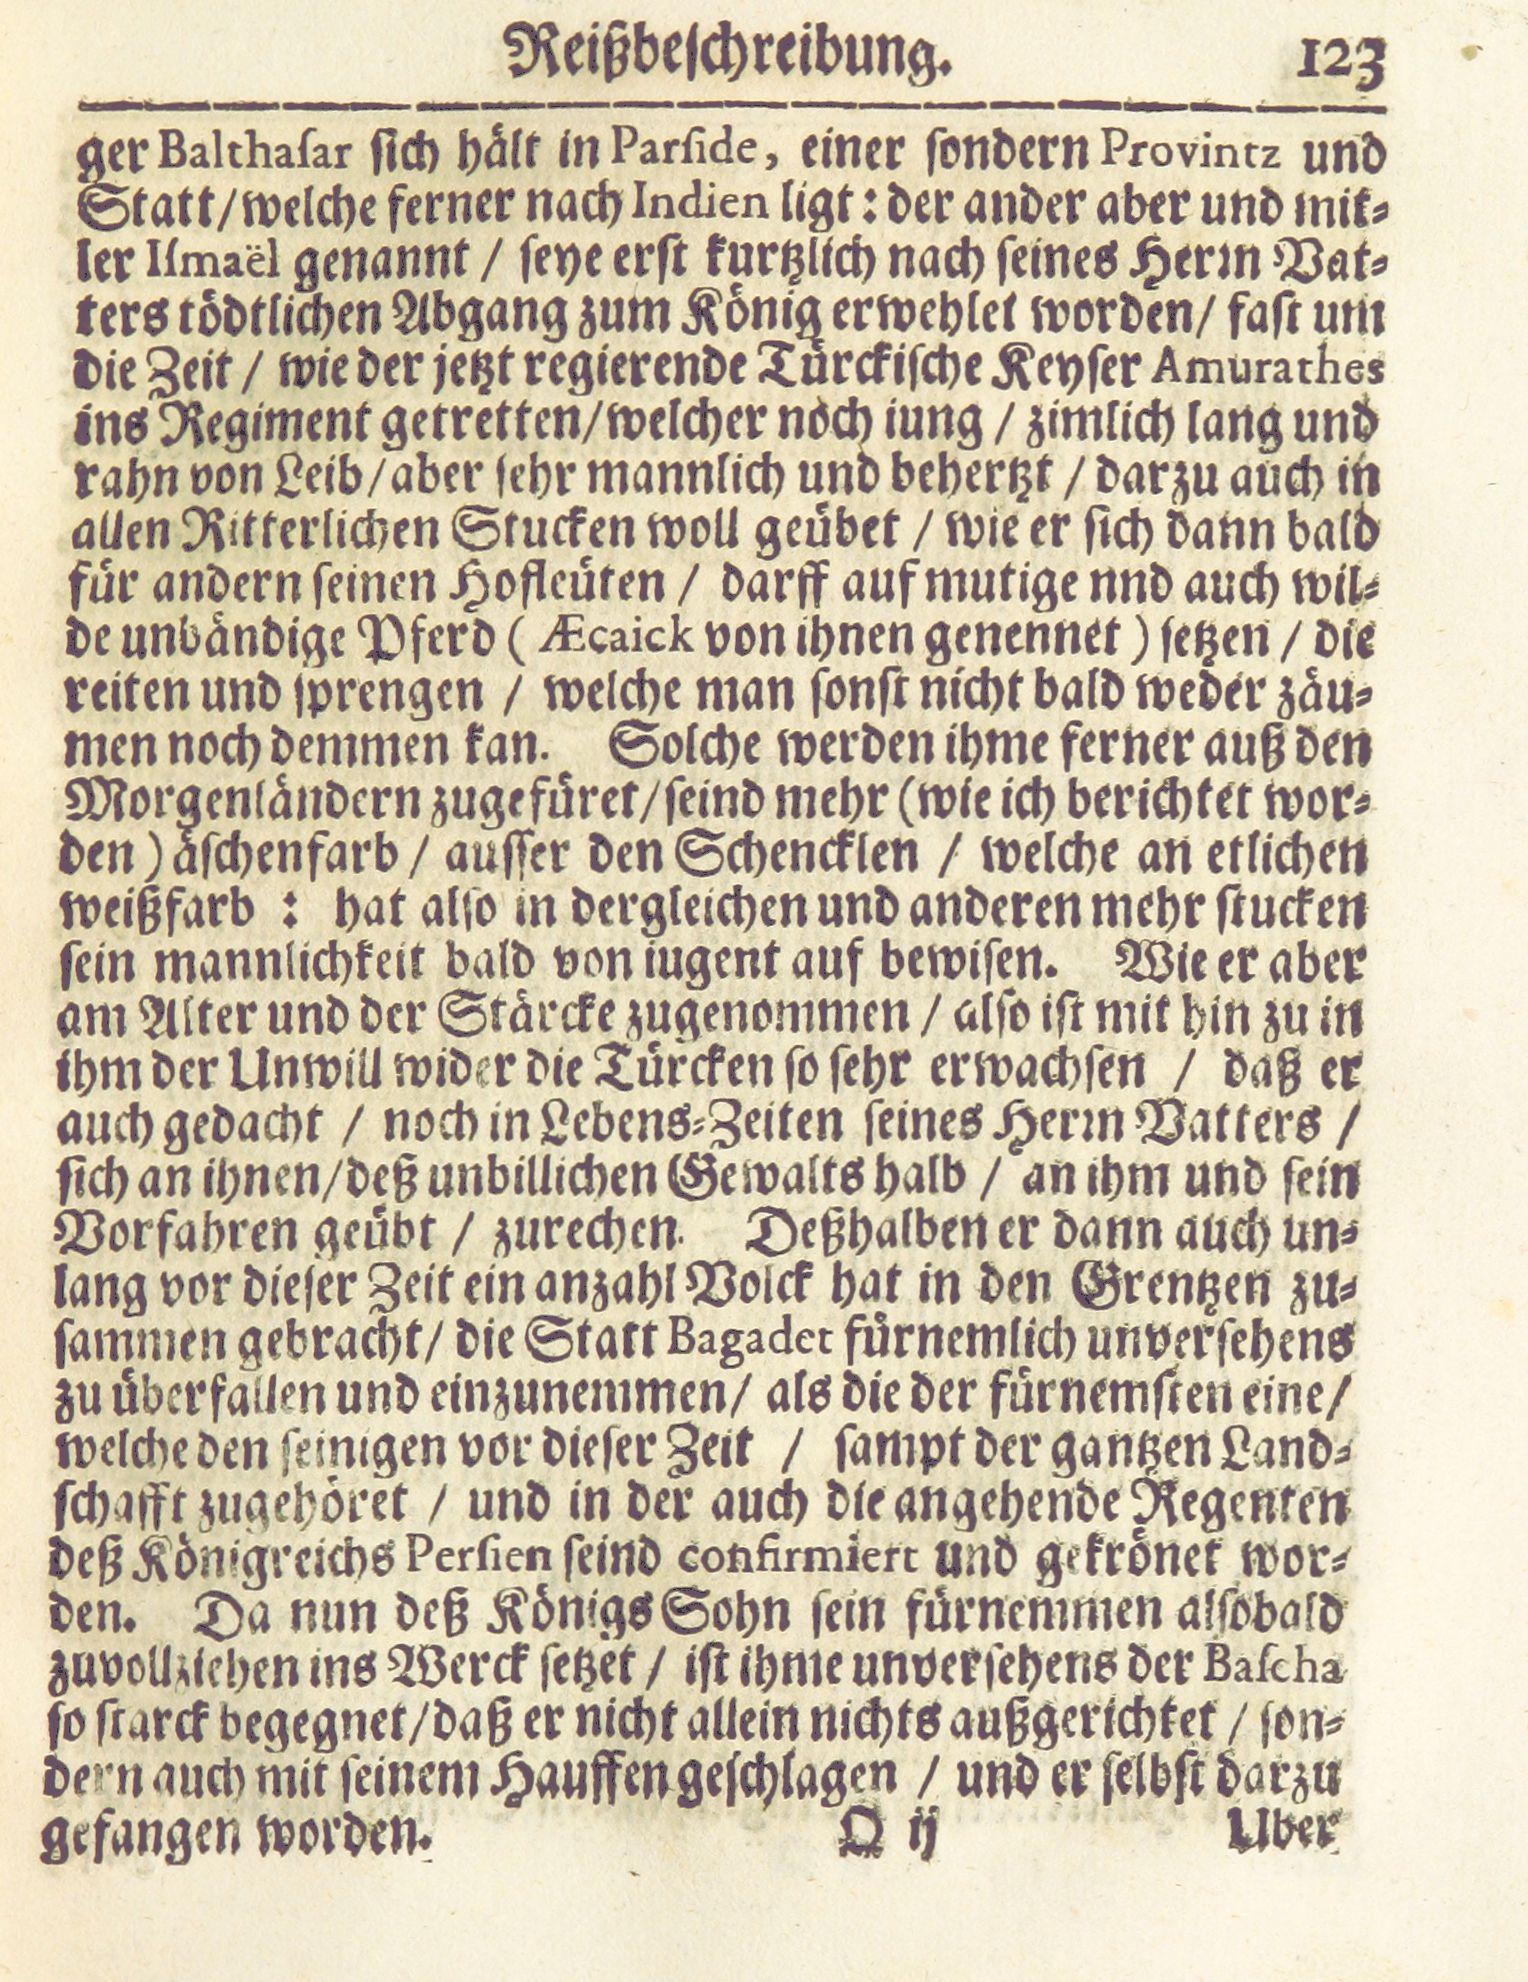 Reißbeschreibung. 123
ger Balthasar sich hält in Parside, einer sondern Provintz und
Statt/welche ferner nach Indien ligt: der ander aber und mit-
ler Ismaël genannt / seye erst kurtzlich nach seines Herrn Vat-
ters tödtlichen Abgang zum König erwehlet worden/ fast um
die Zeit / wie der jetzt regierende Türckische Keyser Amurathes
ins Regiment getretten/welcher noch iung / zimlich lang und
rahn von Leib/aber sehr mannlich und behertzt / darzu auch in
allen Ritterlichen Stucken woll geübet / wie er sich dann bald
für andern seinen Hofleüten / darff auf mutige nnd auch wil-
de unbändige Pferd ( Æcaick von ihnen genennet ) setzen / die
reiten und sprengen / welche man sonst nicht bald weder zäu-
men noch demmen kan. Solche werden ihme ferner auß den
Morgenländern zugefüret/seind mehr (wie ich berichtet wor-
den ) äschenfarb / ausser den Schencklen / welche an etlichen
weißfarb : hat also in dergleichen und anderen mehr stucken
sein mannlichkeit bald von iugent auf bewisen. Wie er aber
am Alter und der Stärcke zugenommen / also ist mit hin zu in
ihm der Unwill wider die Türcken so sehr erwachsen / daß er
auch gedacht / noch in Lebens-Zeiten seines Herrn Vatters /
sich an ihnen/deß unbillichen Gewalts halb / an ihm und sein
Vorfahren geübt / zurechen. Deßhalben er dann auch un-
lang vor dieser Zeit ein anzahl Volck hat in den Grentzen zu-
sammen gebracht/ die Statt Bagadet fürnemlich unversehens
zu überfallen und einzunemmen/ als die der fürnemsten eine/
welche den seinigen vor dieser Zeit / sampt der gantzen Land-
schafft zugehöret / und in der auch die angehende Regenten
deß Königreichs Persien seind confirmiert und gekrönet wor-
den. Da nun deß Königs Sohn sein fürnemmen alsobald
zuvollziehen ins Werck setzet / ist ihme unversehens der Bascha
so starck begegnet/daß er nicht allein nichts außgerichtet / son-
dern auch mit seinem Hauffen geschlagen / und er selbst darzu
gefangen worden. Q ij Uber